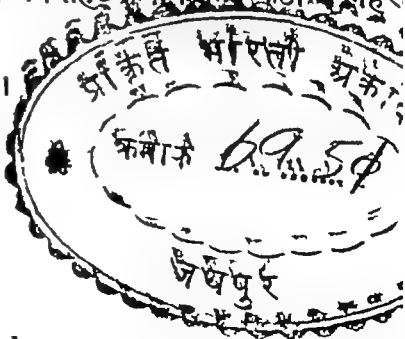 प्राकृत भारती
क्रमांक 69.50
जयपुर